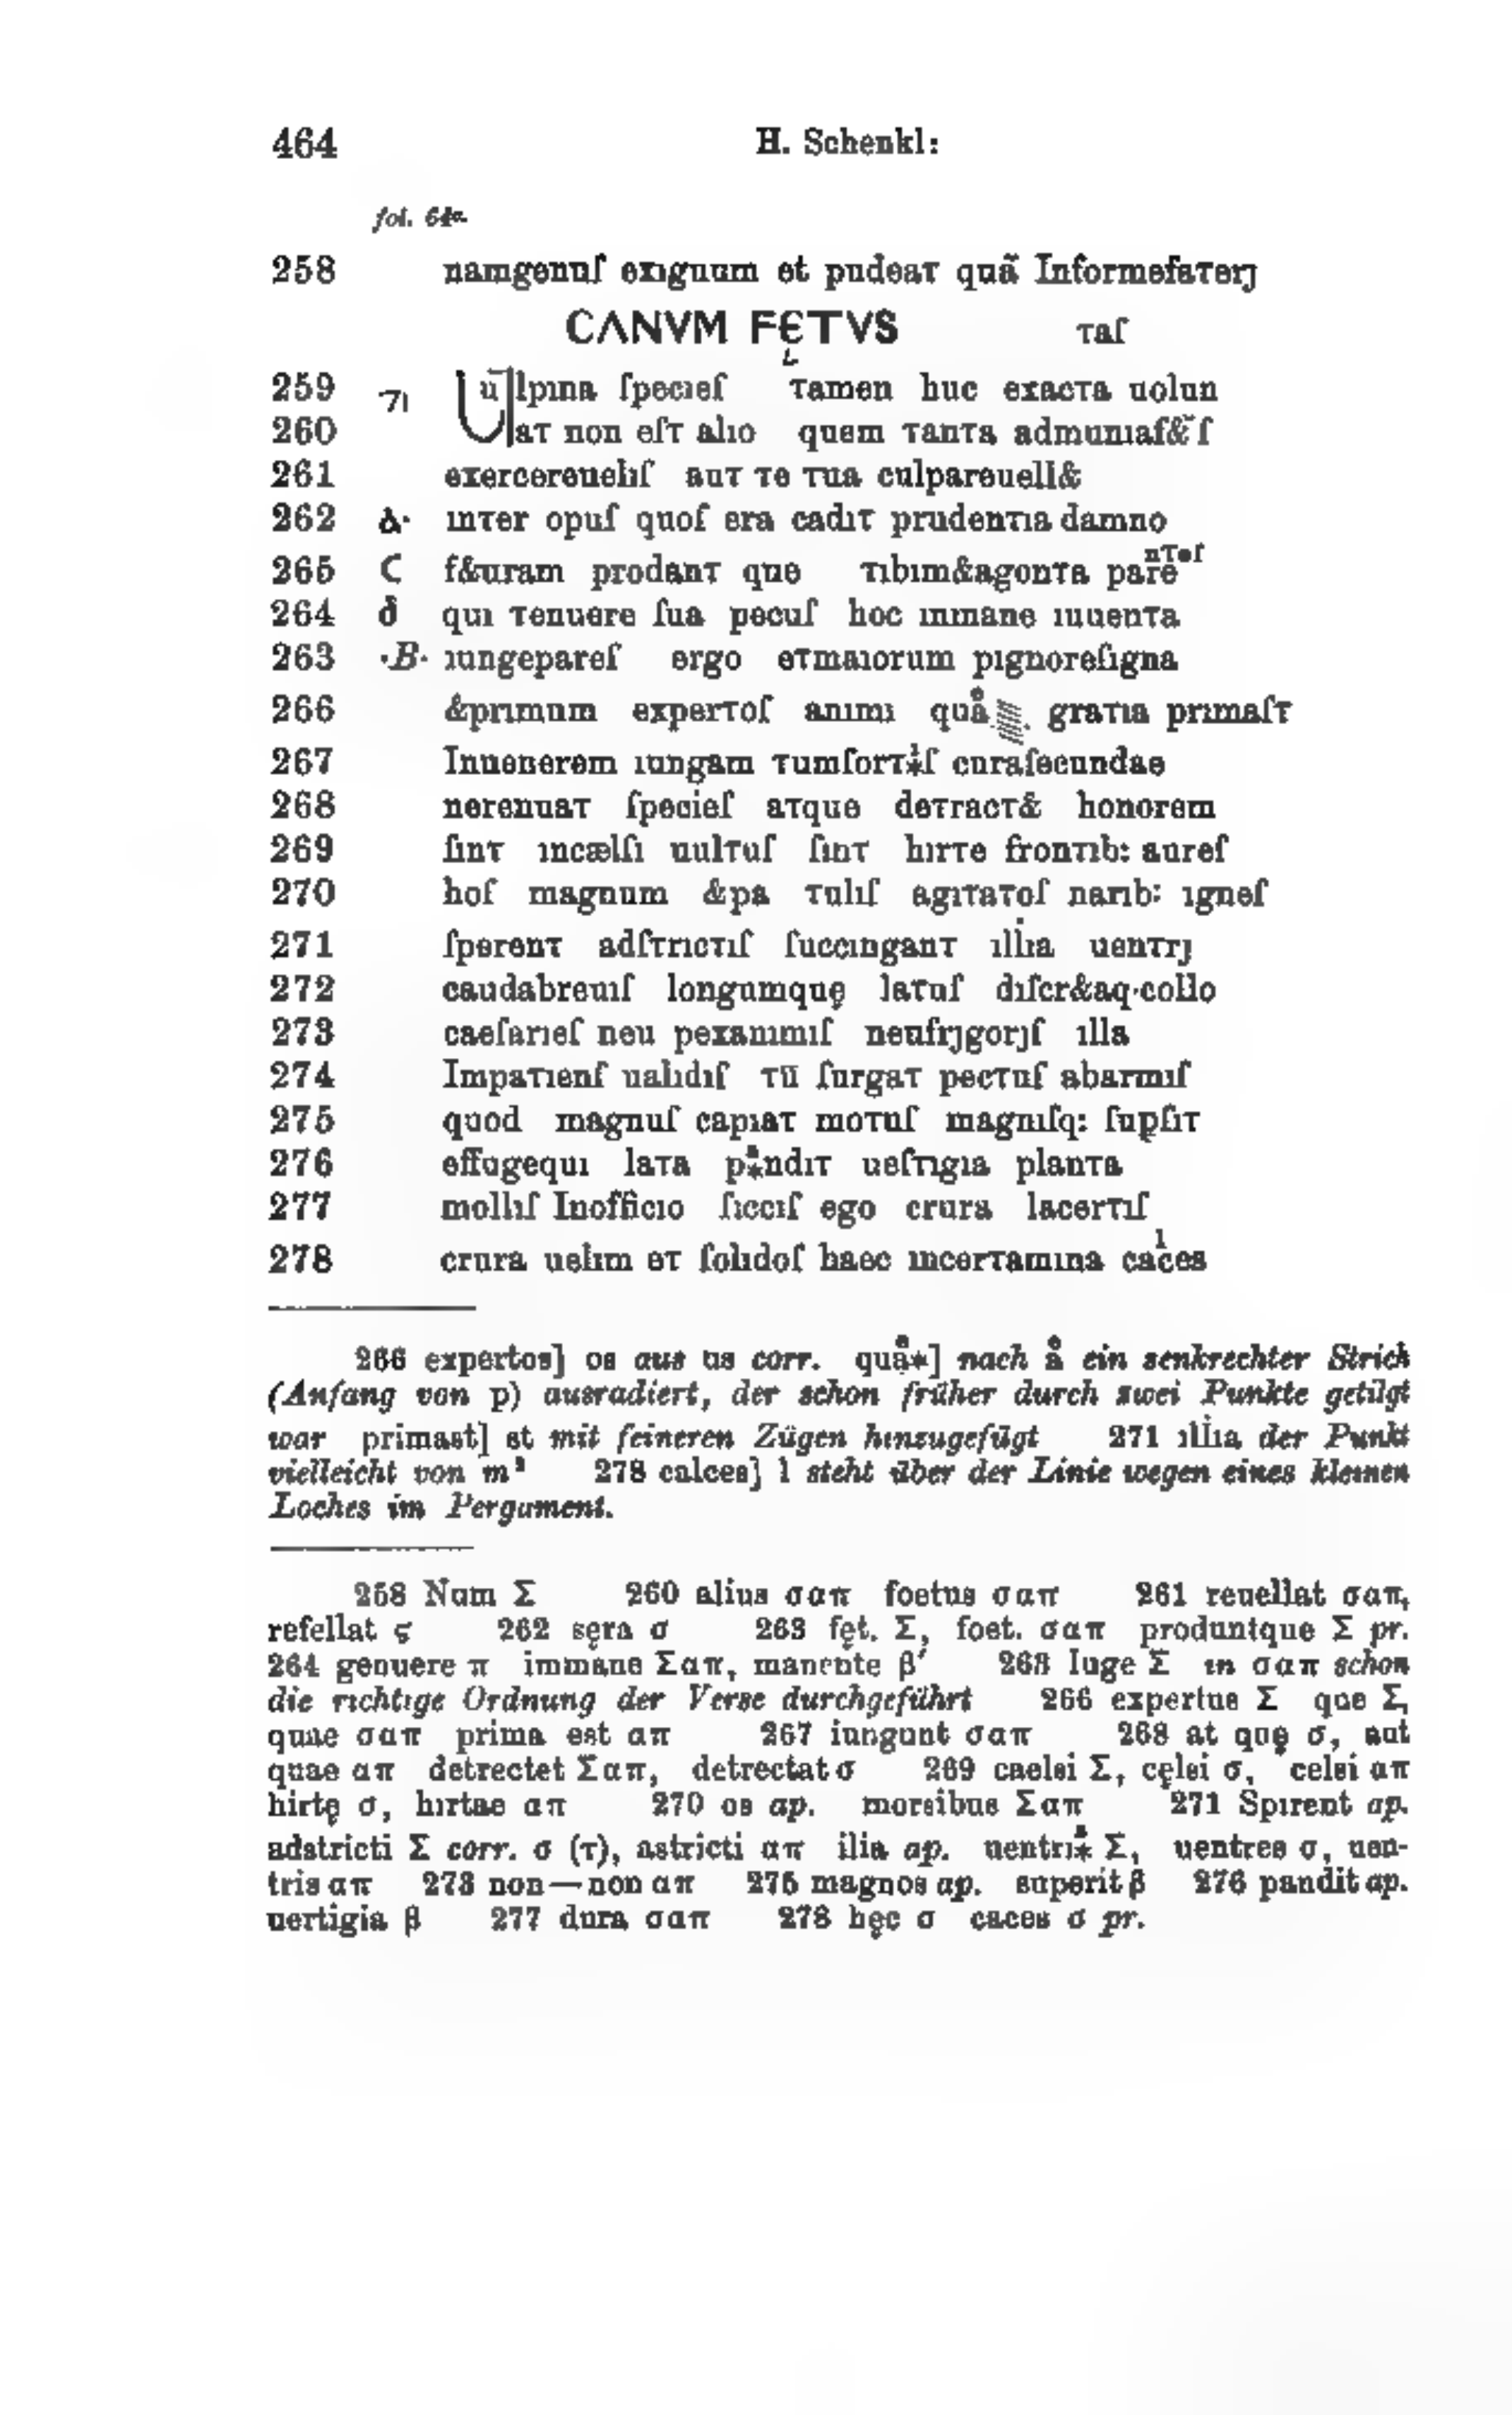 464 H. Schenkl:
fol. 64r.
258 namgenuſ exıguum et pudeaτ quã Informefaτerȷ
CΛNVM FЄTVS τaſ
259 ·71 Uulpına ſpecıeſ τamen huc exacτa uolun
260 aτ non eſτ alıo quem τanτa admunıaſ&ſ
261 exercereuelıſ auτ τe τua culpareuell&
262 a· ınτer opuſ quoſ era cadıτ prudenτıa damno
265 C f&uram prodanτ que τıbım&agonτa pareнτeſ
264 d qui τenuere ſua pecuſ hoc ınmane ıuuenτa
263 ·B· ıungepareſ ergo eτmaıorum pıgnoreſıgna
266 &prımum experτoſ anımı quåe graτıa prımaſτ
267 Inuenerem ıungam τumforτ*ıſ curaſecundae
268 nerenuaτ ſpecieſ aτque deτracτ& honorem
269 ſınτ ıncælſı uulτuſ ſınτ hırτe fronτıb: aureſ
270 hoſ magnum &pa τulıſ agıτaτoſ narıb: ıgneſ
271 ſperenτ adſτrıcτıſ ſuccınganτ ıllia uenτrȷ
272 caudabreuıſ longumquę laτuſ dıſcr&aq·collo
273 caeſarıeſ neu pexanımıſ neufrȷgorȷſ ılla
274 Impaτıenſ ualıdıſ τū ſurgaτ pecτuſ abarmıſ
275 quod magnuſ capıaτ moτuſ magnıſq: ſupſıτ
276 effugequı laτa pa*ndıτ ueſτıgıa planτa
277 mollıſ Inofficıo ſıccıſ ego crura lacerτıſ
278 crura uelım eτ ſolıdoſ haec ıncerτamına calces
266 expertos] os aus us corr. quåe*] nach åe ein senkrechter Strich
(Anfang von p) ausradiert, der schon früher durch zwei Punkte getilgt
war primast] st mit feineren Zügen hinzugefügt 271 ıllia der Punkt
vielleicht von m² 278 calces] l steht über der Linie wegen eines kleinen
Loches im Pergament.
258 Num Σ 260 alius σαπ foetus σαπ 261 reuellat σαπ,
refellat ς 262 sęra σ 263 fęt. Σ, foet. σαπ produntque Σ pr.
264 genuere π immane Σαπ, manente β′ 263 Iuge Σ in σαπ schon
die richtige Ordnung der Verse durchgeführt 266 expertus Σ que Σ,
quae σαπ prima est απ 267 iungunt σαπ 268 at quę σ, aut
quae απ detrectet Σαπ, detrectat σ 269 caelsi Σ, cęlsi σ, celsi απ
hirtę σ, hırtae απ 270 os ap. morsibus Σαπ 271 Spirent ap.
adstricti Σ corr. σ (τ), astricti απ ilia ap. uentri* Σ, uentres σ, uen-
tris απ 273 non—non απ 275 magnos ap. superit β 276 pandit ap.
uertigia β 277 dura σαπ 278 hęc σ caces σ pr.